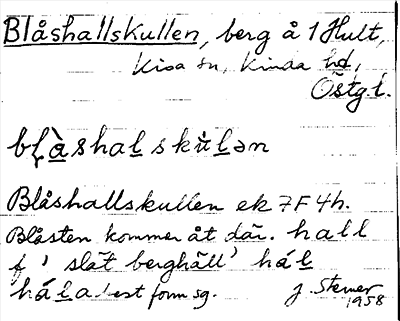 Blåshallskullen, berg å 1 Hult,
Kisa sn, Kinda hd,
Östgl.
blå̀shalskulən
Blåshallskullen ek 7F 4h.
Blåsten kommer åt där. hall
f ' slät berghäll' há́l
há́la best form sg. J. Sterner
1958